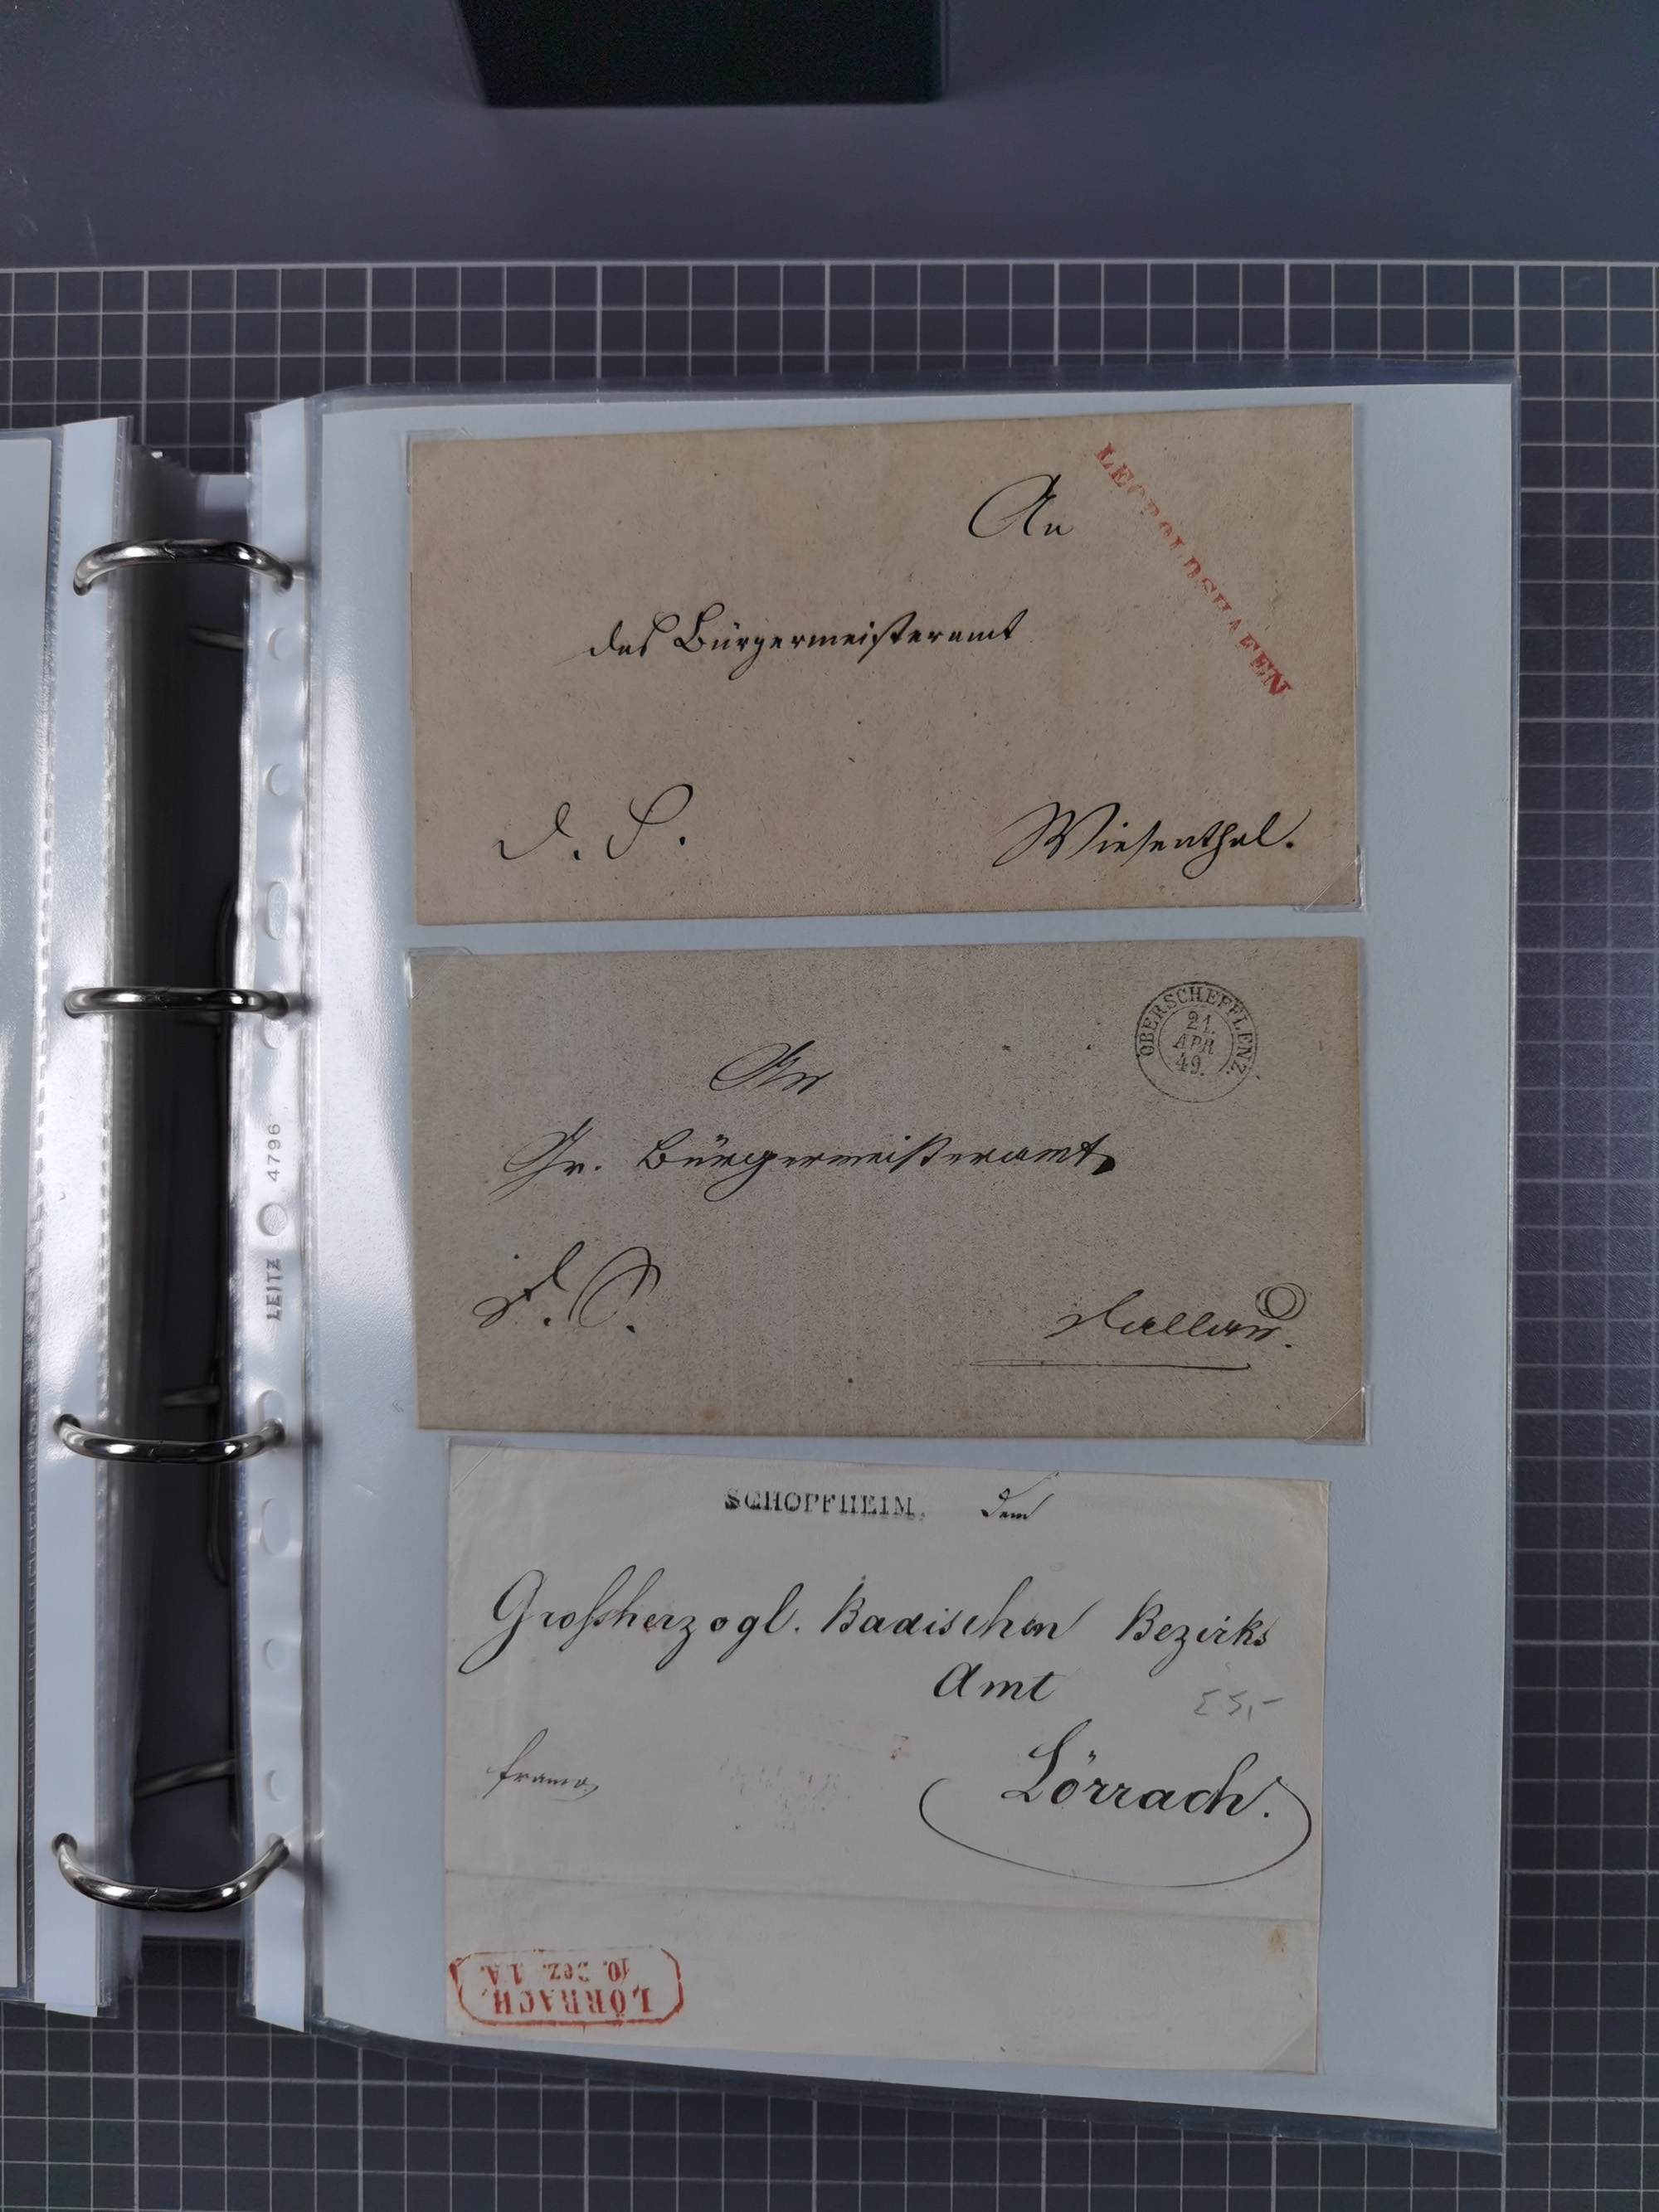 LEOPOLDSHAFEN
An
das Bürgermeisteramt
D. S.
Wiesenthal.
OBERSCHEFFLENZ.
21.
APR
49.
An
Gr. Bürgermeisteramt
D. S.
Dallau.
SCHOPFHEIM.
Dem
Großherzogl. Badischen Bezirks
Amt
franco
Lörrach.
LÖRRACH.
10. Dez. 1 A.
LEITZ 4796